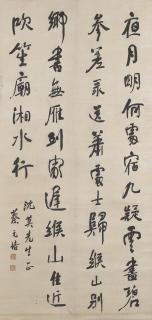 夜月明何處宿九疑雲盡碧
參差水送蕭雲士歸緱山別
鄉書無雁到家遲緱山住近
吹笙廟湘水行
沈英先生正
蔡元培